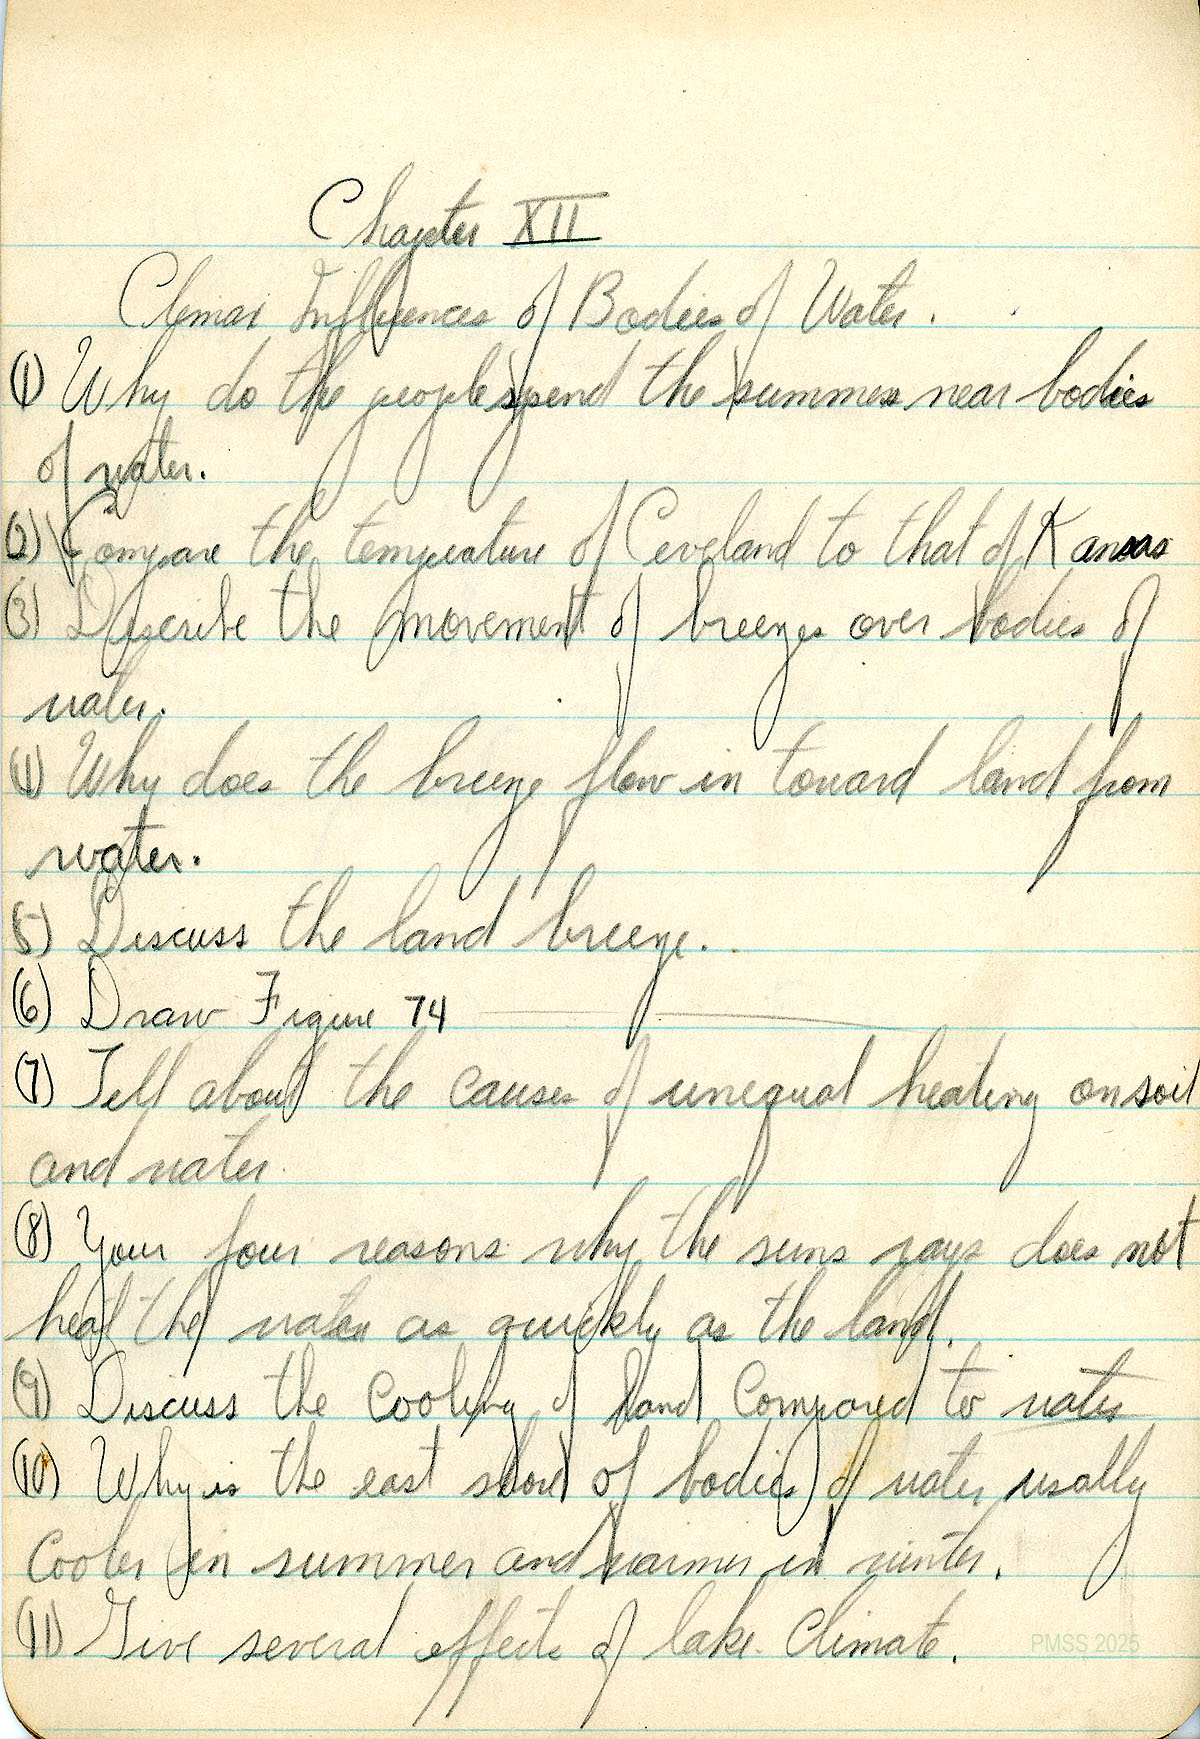 Chapter XII
Climax Influences of Bodies of Water.
(1) Why do the people spend the summer near bodies
of water.
(2) Compare the temperature of Ceveland to that of Kansas
(3) Describe the movement of breezes over bodies of
water.
(4) Why does the breeze flow in toward land from
water.
(5) Discuss the land breeze.
(6) Draw Figure 74
(7) Tell about the causes of unequal heating on soil
and water.
(8) Your four reasons why the suns rays does not
heat the water as quickly as the land.
(9) Discuss the cooling of land compared to water
(10) Why is the east shore of bodies of water usally
cooler in summer and warmer in winter.
(11) Give several effects of lake climate.
PMSS 2025